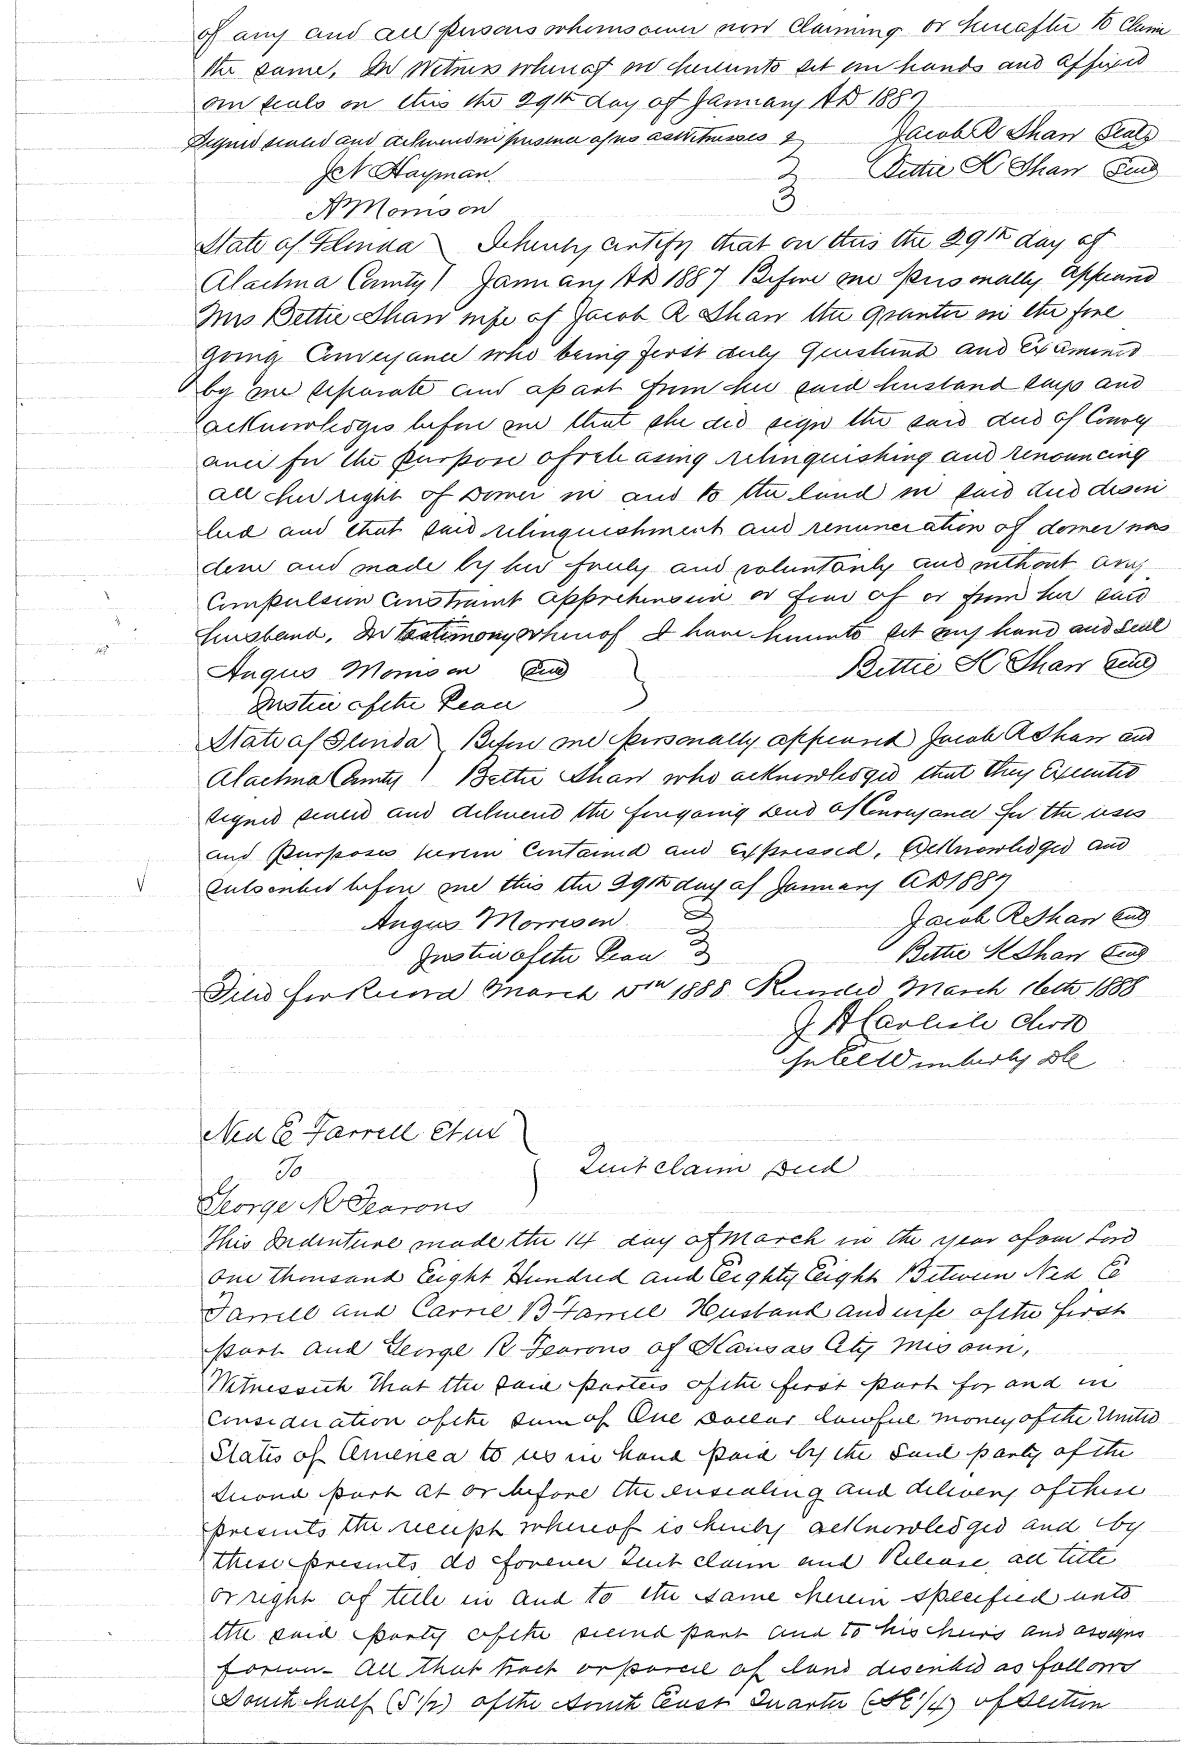 of any and all persons whomsoever now claiming or hereafter to claim
the same. In Witness whereof we hereunto set our hands and affixed
our seals on this the 29th day of January AD 1887
Signed sealed and delivered in presence of us as witnesses } Jacob R Shaw Seal
J N Hayman. } Bettie K Shaw Seal
A Morrison }
State of Florida } I hereby certify that on this the 29th day of
Alachua County } January AD 1887 Before me personally appeared
Mrs Bettie Shaw wife of Jacob R Shaw the grantor in the fore
going Conveyance who being first duly questioned and Examined
by me separate and apart from her said husband says and
acknowledges before me that she did sign the said deed of Convey
ance for the purpose of releasing relinquishing and renouncing
all her right of Dower in and to the land in said deed descri
bed and that said relinquishment and renunciation of dower was
done and made by her freely and voluntarily and without any
Compulsion Constraint apprehension or fear of or from her said
husband. In testimony whereof I have hereunto set my hand and seal
Angus Morrison Seal } Bettie K Shaw Seal
Justice of the Peace
State of Florida } Before me personally appeared Jacob R Shaw and
Alachua County } Bettie Shaw who acknowledged that they Executed
signed sealed and delivered the foregoing Deed of Conveyance for the uses
and Purposes herein Contained and expressed. Acknowledged and
subscribed before me this the 29th day of January AD 1887
Angus Morrison } Jacob R Shaw Seal
Justice of the Peace } Bettie K Shaw Seal
Filed for Record March 1888 Recorded March 16th 1888
J A Carlisle Clerk
Wimberly DC
Ned E Farrell et ux }
To } Quit claim Deed
George R Fearons
This Indenture made the 14 day of March in the year of our Lord
one thousand Eight Hundred and Eighty Eight Between Ned E
Farrell and Carrie B Farrell Husband and wife of the first
part and George R Fearons of Kansas City Missouri,
Witnesseth That the said parties of the first part for and in
Consideration of the sum of One Dollar lawful money of the United
States of America to us in hand paid by the said party of the
second part at or before the ensealing and delivery of these
presents the receipt whereof is hereby acknowledged and by
these presents do forever Quit claim and Release all title
or right of title in and to the same herein specified unto
the said party of the second part and to his heirs and assigns
forever. All that tract or parcel of land described as follows
South half (S 1/2) of the South East Quarter (SE 1/4) of Section